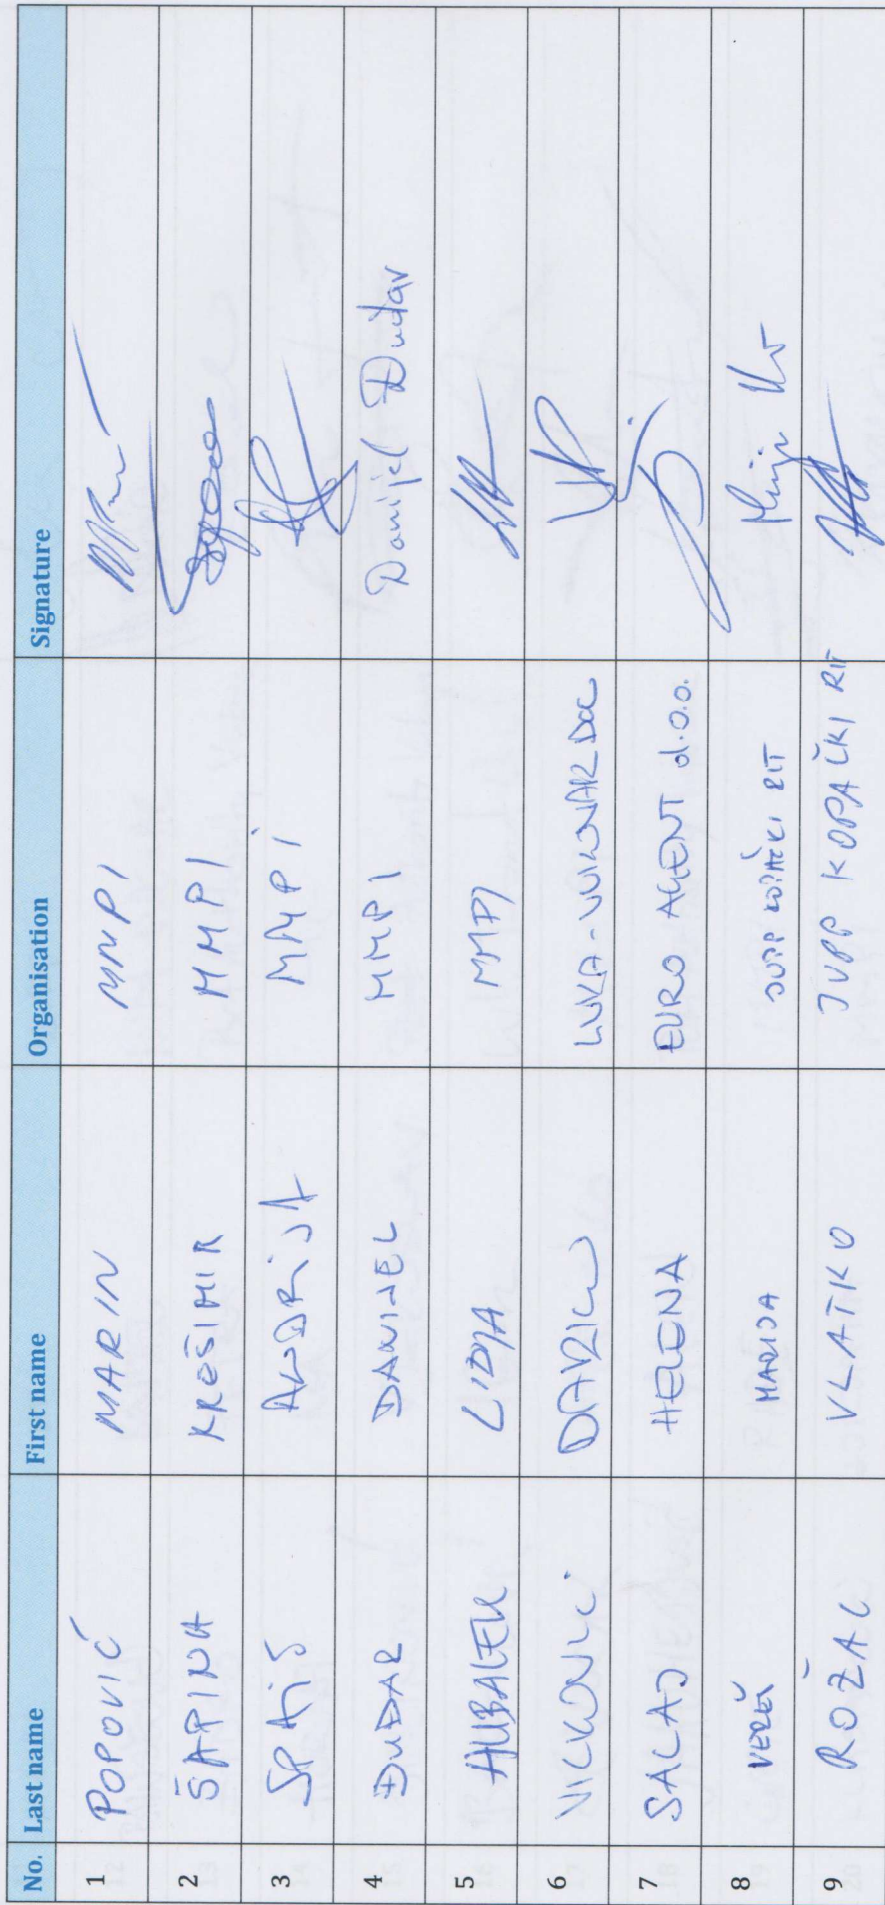 No. Last name First name Organisation Signature
1 POPOVIĆ MARIN MMPI
2 ŠAPINA KREŠIMIR MMPI
3 SPAIŠ ANDRIJA MMPI
4 DUDAR DANIJEL MMPI Danijel Dudar
5 HUBALEK LIDIJA MMPI
6 VICKOVIĆ DARKO LUKA - VUKOVAR DOO
7 SALAJ HELENA EURO AGENT d.o.o.
8 VEREŠ MARIJA JUPP KOPAČKI RIT
9 ROŽAC VLATKO JUPP KOPAČKI RIT